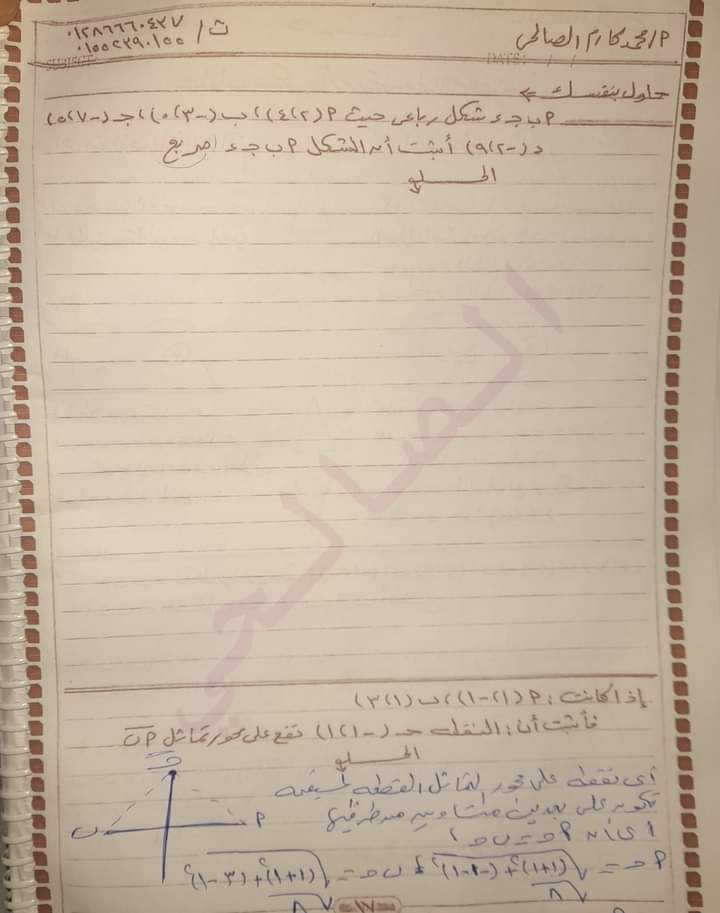 ٢/محمد كارم الصالحى
ت/ ٠١٢٨٦٦٦٠٤٢٧
٠١٠٠٢٢٩٠١٠٠
DATE: / /
حاول بنفسك
٢ ب جـ ء شكل رباعى حيث ٢ (٢،٤)، ب (-٣،٠)، جـ (-٧،٥)
د (-٢،٩) أثبت أن الشكل ٢ ب جـ ء مربع
الحــل
الصالحي
إذا كانت: ٢ (١،-١)، ب (١،٣)
فأثبت أن: النقطه حـ (-١،١) تقع على محور تماثل ٢ ب
الحــل
أى نقطه على محور تماثل القطعه المستقيمه
تكون على بعدين متساويين من طرفيها
أى أن ٢ حـ = ب حـ
حـ
ب
٢
٢ حـ = √(١+١)²+(-١-١)² ، ب حـ = √(١+١)²+(٣-١)²
√٨
√٨
١٧